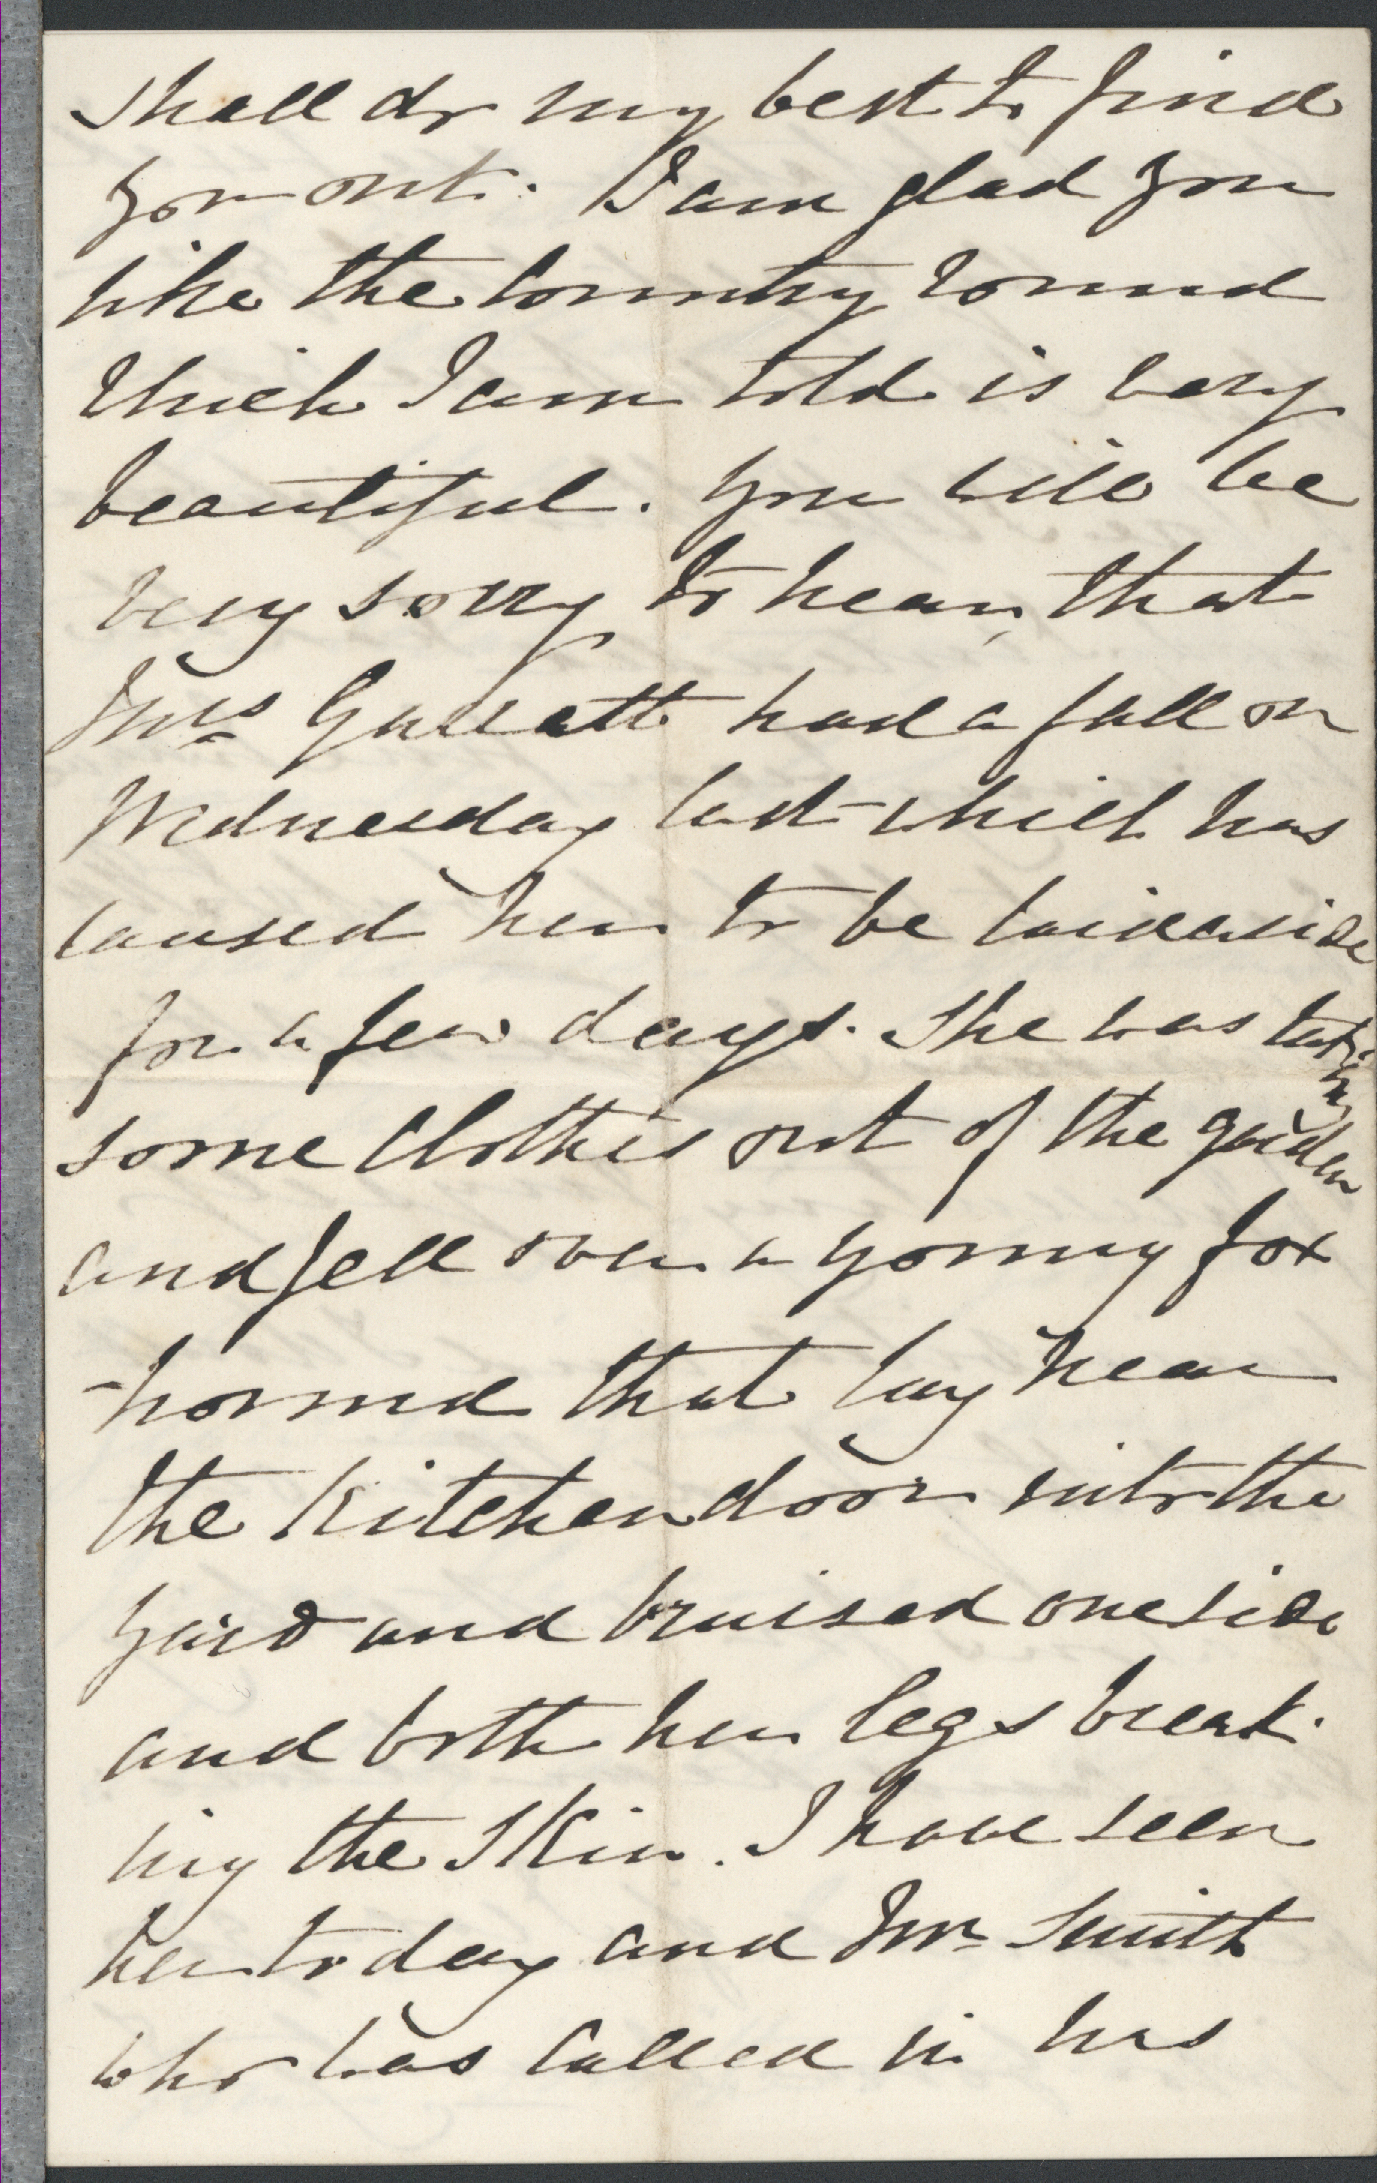 shall do my best to find
you out. I am glad you
like the Country round
which I am told is very
beautiful. you will be
very sorry to hear, that
Mrs Garratt had a fall on
Wednesday last which has
caused her to be laid aside
for a few days. She was taking
some Clothes out of the garden
and fell over a young fox
-hound that lay near
the Kitchen door into the
yard and bruised one side
and both her legs break-
ing the Skin. I have seen
her to day and Mr Smith
who was called in has